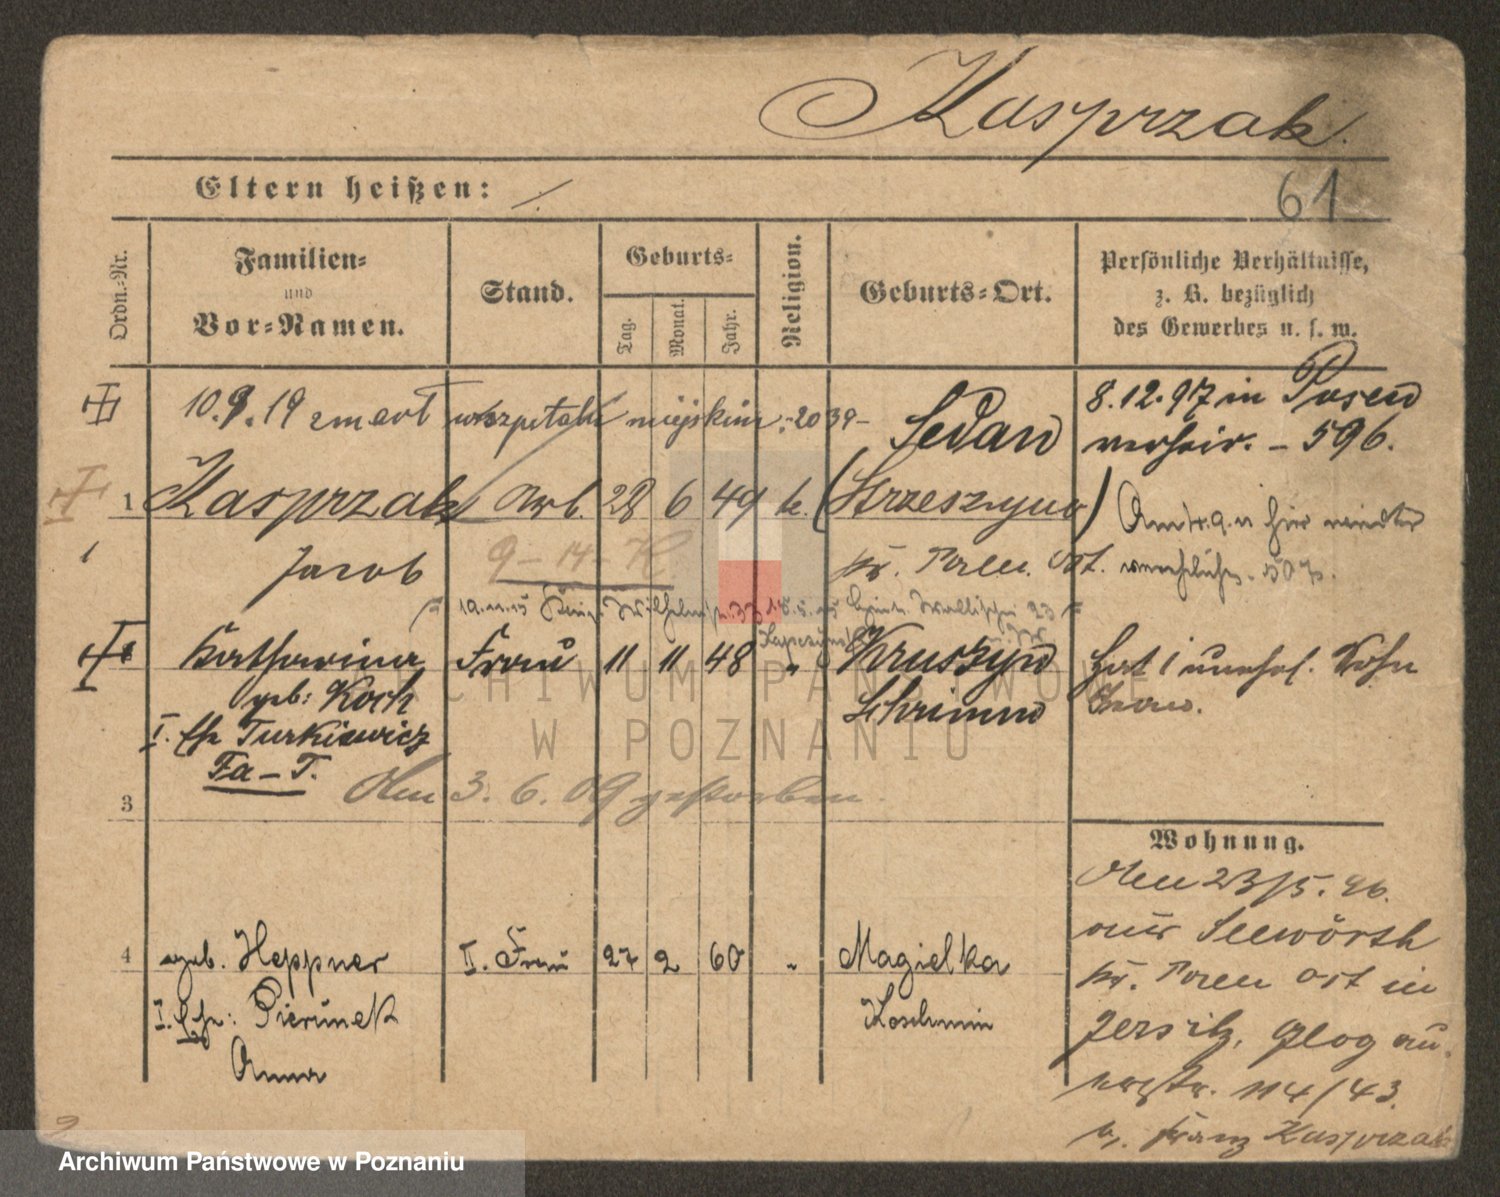 Kasprzak.
Eltern heißen:
61
Ordn.-Nr.
Familien-
und
Vor-Namen.
Stand.
Geburts-
Tag.
Monat.
Jahr.
Religion.
Geburts-Ort.
Persönliche Verhältnisse,
z. B. bezüglich
des Gewerbes u. s. w.
10.9.19 zmarł w szpitalu miejskim
Sedan
8.12.97 in Posen
verheir. - 596.
1 Kasprzak Arb. 28 6 49 k. (Strzeszyno)
Jacob
9-14-K.
kr. Posen Ost.
Katharina Frau 11 11 48 " Kruszyn
geb: Koch
Schrimm
Hat 1 unehel. Sohn
I. Eh Turkiewicz
Fa - T.
3
Am 3. 6. 09 gestorben.
Wohnung.
Am 23/5. 96.
aus Seewörth
kr. Posen Ost in
Jersitz, Glogau.
erstr. 114/43.
b. Franz Kasprzak
4 geb. Heppner II. Frau 27 2 60 " Magielka
I. Eh: Pierunek
Koschmin
Anna
ARCHIWUM PAŃSTWOWE
W POZNANIU
Archiwum Państwowe w Poznaniu